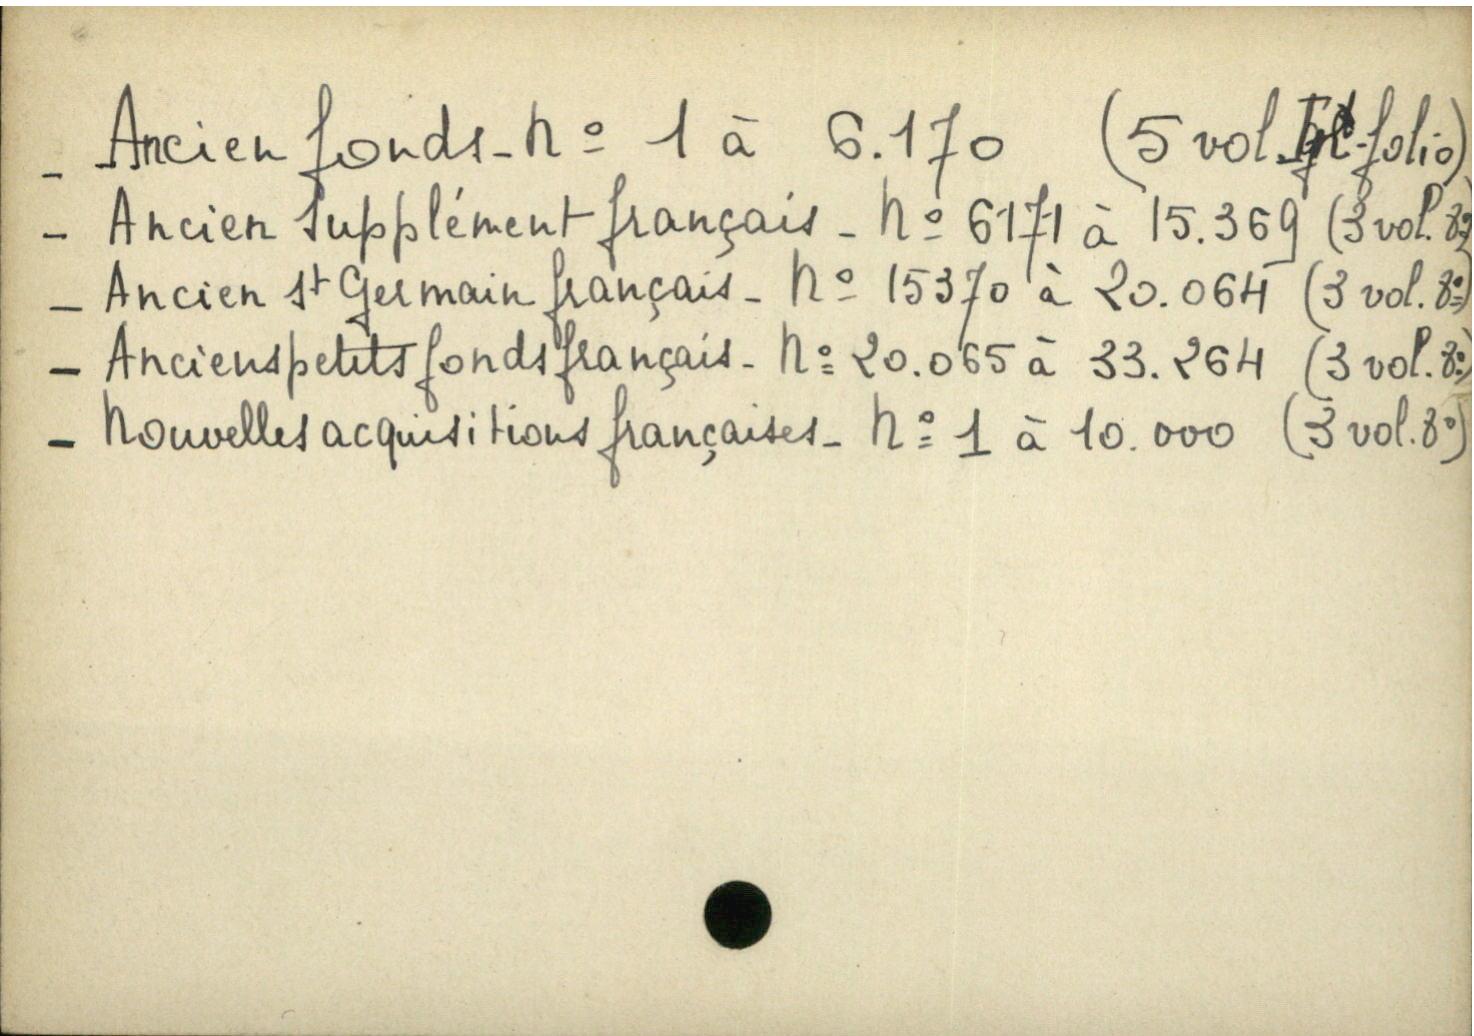 - Ancien fonds - Nº 1 à 6.170 (5 vol. -folio)
- Ancien Supplément français - Nº 6171 à 15.369 (3 vol. 8º)
- Ancien St Germain français - Nº 15370 à 20.064 (3 vol. 8º)
- Anciens petits fonds français - Nº 20.065 à 33.264 (3 vol. 8º)
- Nouvelles acquisitions françaises - Nº 1 à 10.000 (3 vol. 8º)